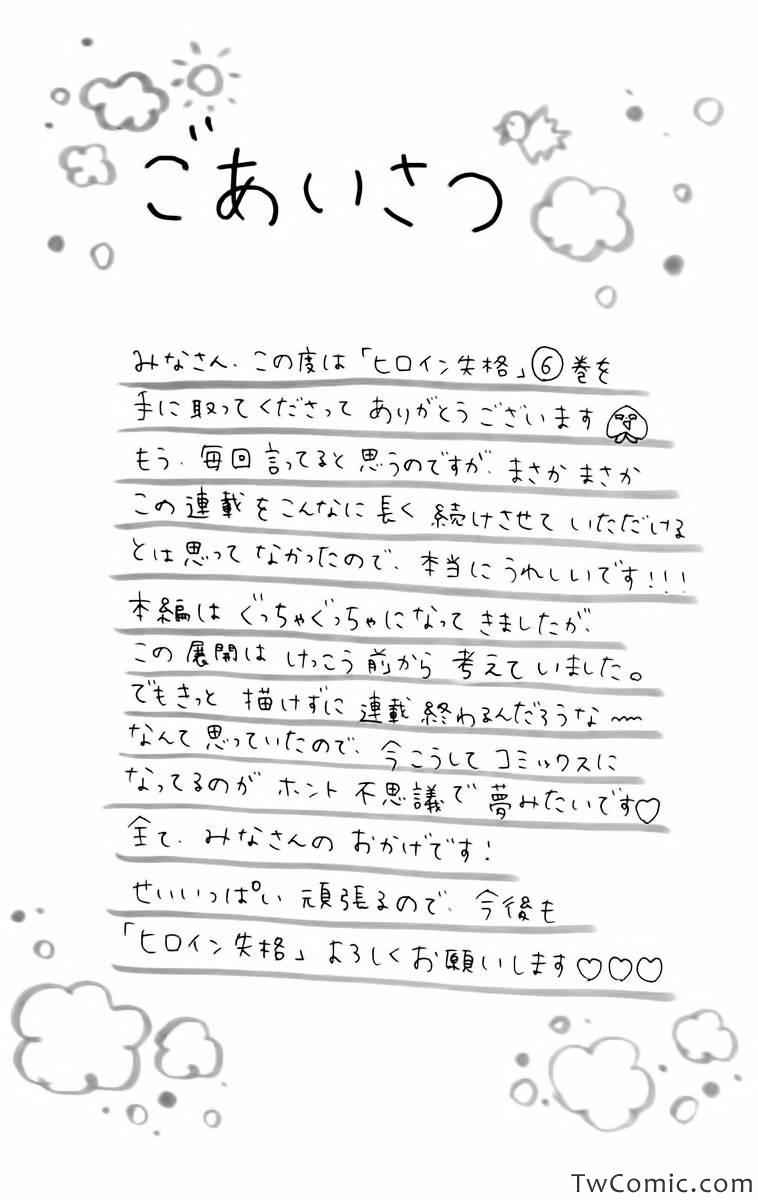 ごあいさつ
みなさん、この度は「ヒロイン失格」⑥巻を
手に取ってくださってありがとうございます
もう、毎回言ってると思うのですが、まさかまさか
この連載をこんなに長く続けさせていただける
とは思ってなかったので、本当にうれしいです!!!
本編はぐっちゃぐっちゃになってきましたが、
この展開はけっこう前から考えていました。
でもきっと描けずに連載終わるんだろうな〜
なんて思っていたので、今こうしてコミックスに
なってるのがホント不思議で夢みたいです♡
全て、みなさんのおかげです!
せいいっぱい頑張るので、今後も
「ヒロイン失格」よろしくお願いします♡♡♡
TwComic.com